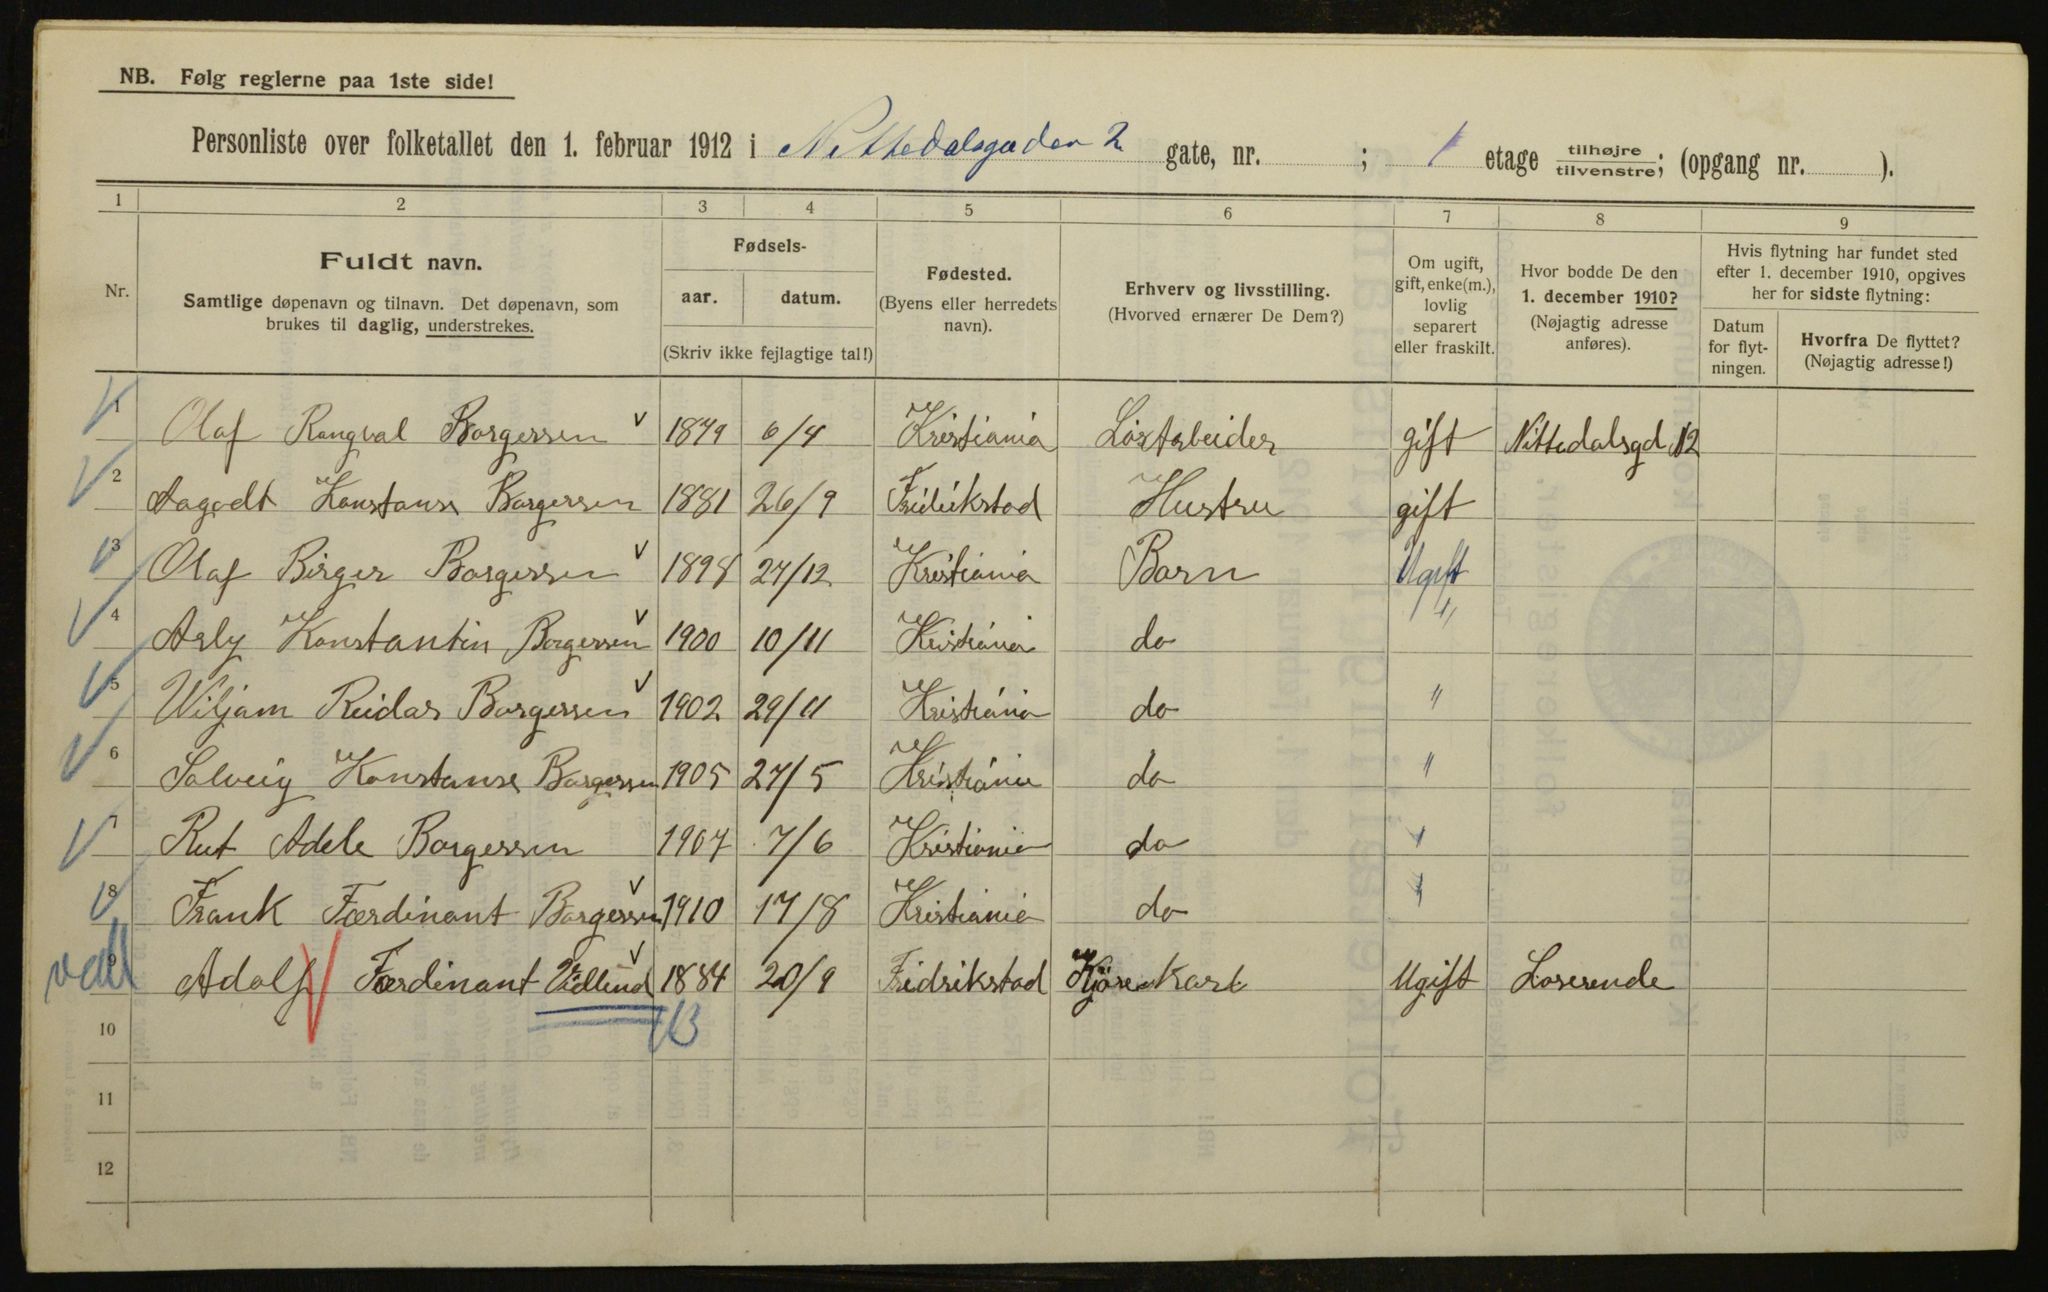 NB. Følg reglerne paa 1ste side!
Personliste over folketallet den 1. februar 1912 i Nittedalsgaden 2 gate, nr. ; 1 etage tilhøjre/tilvenstre; (opgang nr. ).
1 2 3 4 5 6 7 8 9
Nr.
Fuldt navn.
Samtlige døpenavn og tilnavn. Det døpenavn, som
brukes til daglig, understrekes.
Fødsels-
aar. datum.
(Skriv ikke fejlagtige tal!)
Fødested.
(Byens eller herredets
navn).
Erhverv og livsstilling.
(Hvorved ernærer De Dem?)
Om ugift,
gift, enke(m.),
lovlig
separert
eller fraskilt.
Hvor bodde De den
1. december 1910?
(Nøjagtig adresse
anføres).
Hvis flytning har fundet sted
efter 1. december 1910, opgives
her for sidste flytning:
Datum
for flyt-
ningen.
Hvorfra De flyttet?
(Nøjagtig adresse!)
1 Olaf Rangval Borgersen 1879 6/4 Kristiania Løsarbeider gift Nittedalsgd 12
2 Aagodt Konstanse Borgersen 1881 26/9 Fridrikstad Hustru gift
3 Olaf Birger Borgersen 1898 27/12 Kristiania Barn Ugift
4 Asly Konstantin Borgersen 1900 10/11 Kristiania do "
5 Wiljam Reidar Borgersen 1902 29/11 Kristiania do "
6 Solveig Konstanse Borgersen 1905 27/5 Kristiania do "
7 Rut Adele Borgersen 1907 7/6 Kristiania do "
8 Frank Færdinant Borgersen 1910 17/8 Kristiania do "
9 Adolf Færdinant Vidlund 1884 20/9 Fridrikstad Kjörekarl Ugift Loserende
10
11
12